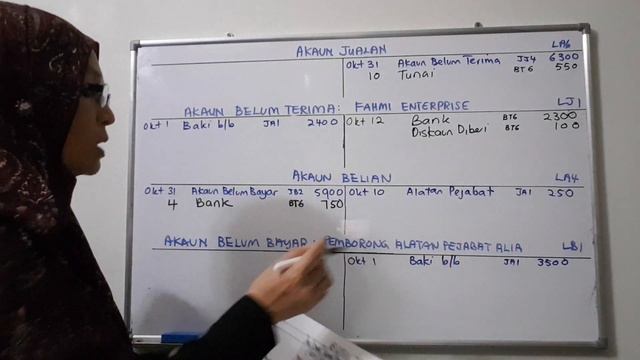 AKAUN JUALAN LA6
Okt 31 Akaun Belum Terima JJ4 6300
10 Tunai BT6 550
AKAUN BELUM TERIMA: FAHMI ENTERPRISE LJ1
Okt 1 Baki b/b JA1 2400 Okt 12 Bank BT6 2300
Diskaun Diberi BT6 100
AKAUN BELIAN LA4
Okt 31 Akaun Belum Bayar JB2 5900 Okt 10 Alatan Pejabat JA1 250
4 Bank BT6 750
AKAUN BELUM BAYAR: PEMBORONG ALATAN PEJABAT ALIA LB1
Okt 1 Baki b/b JA1 3500